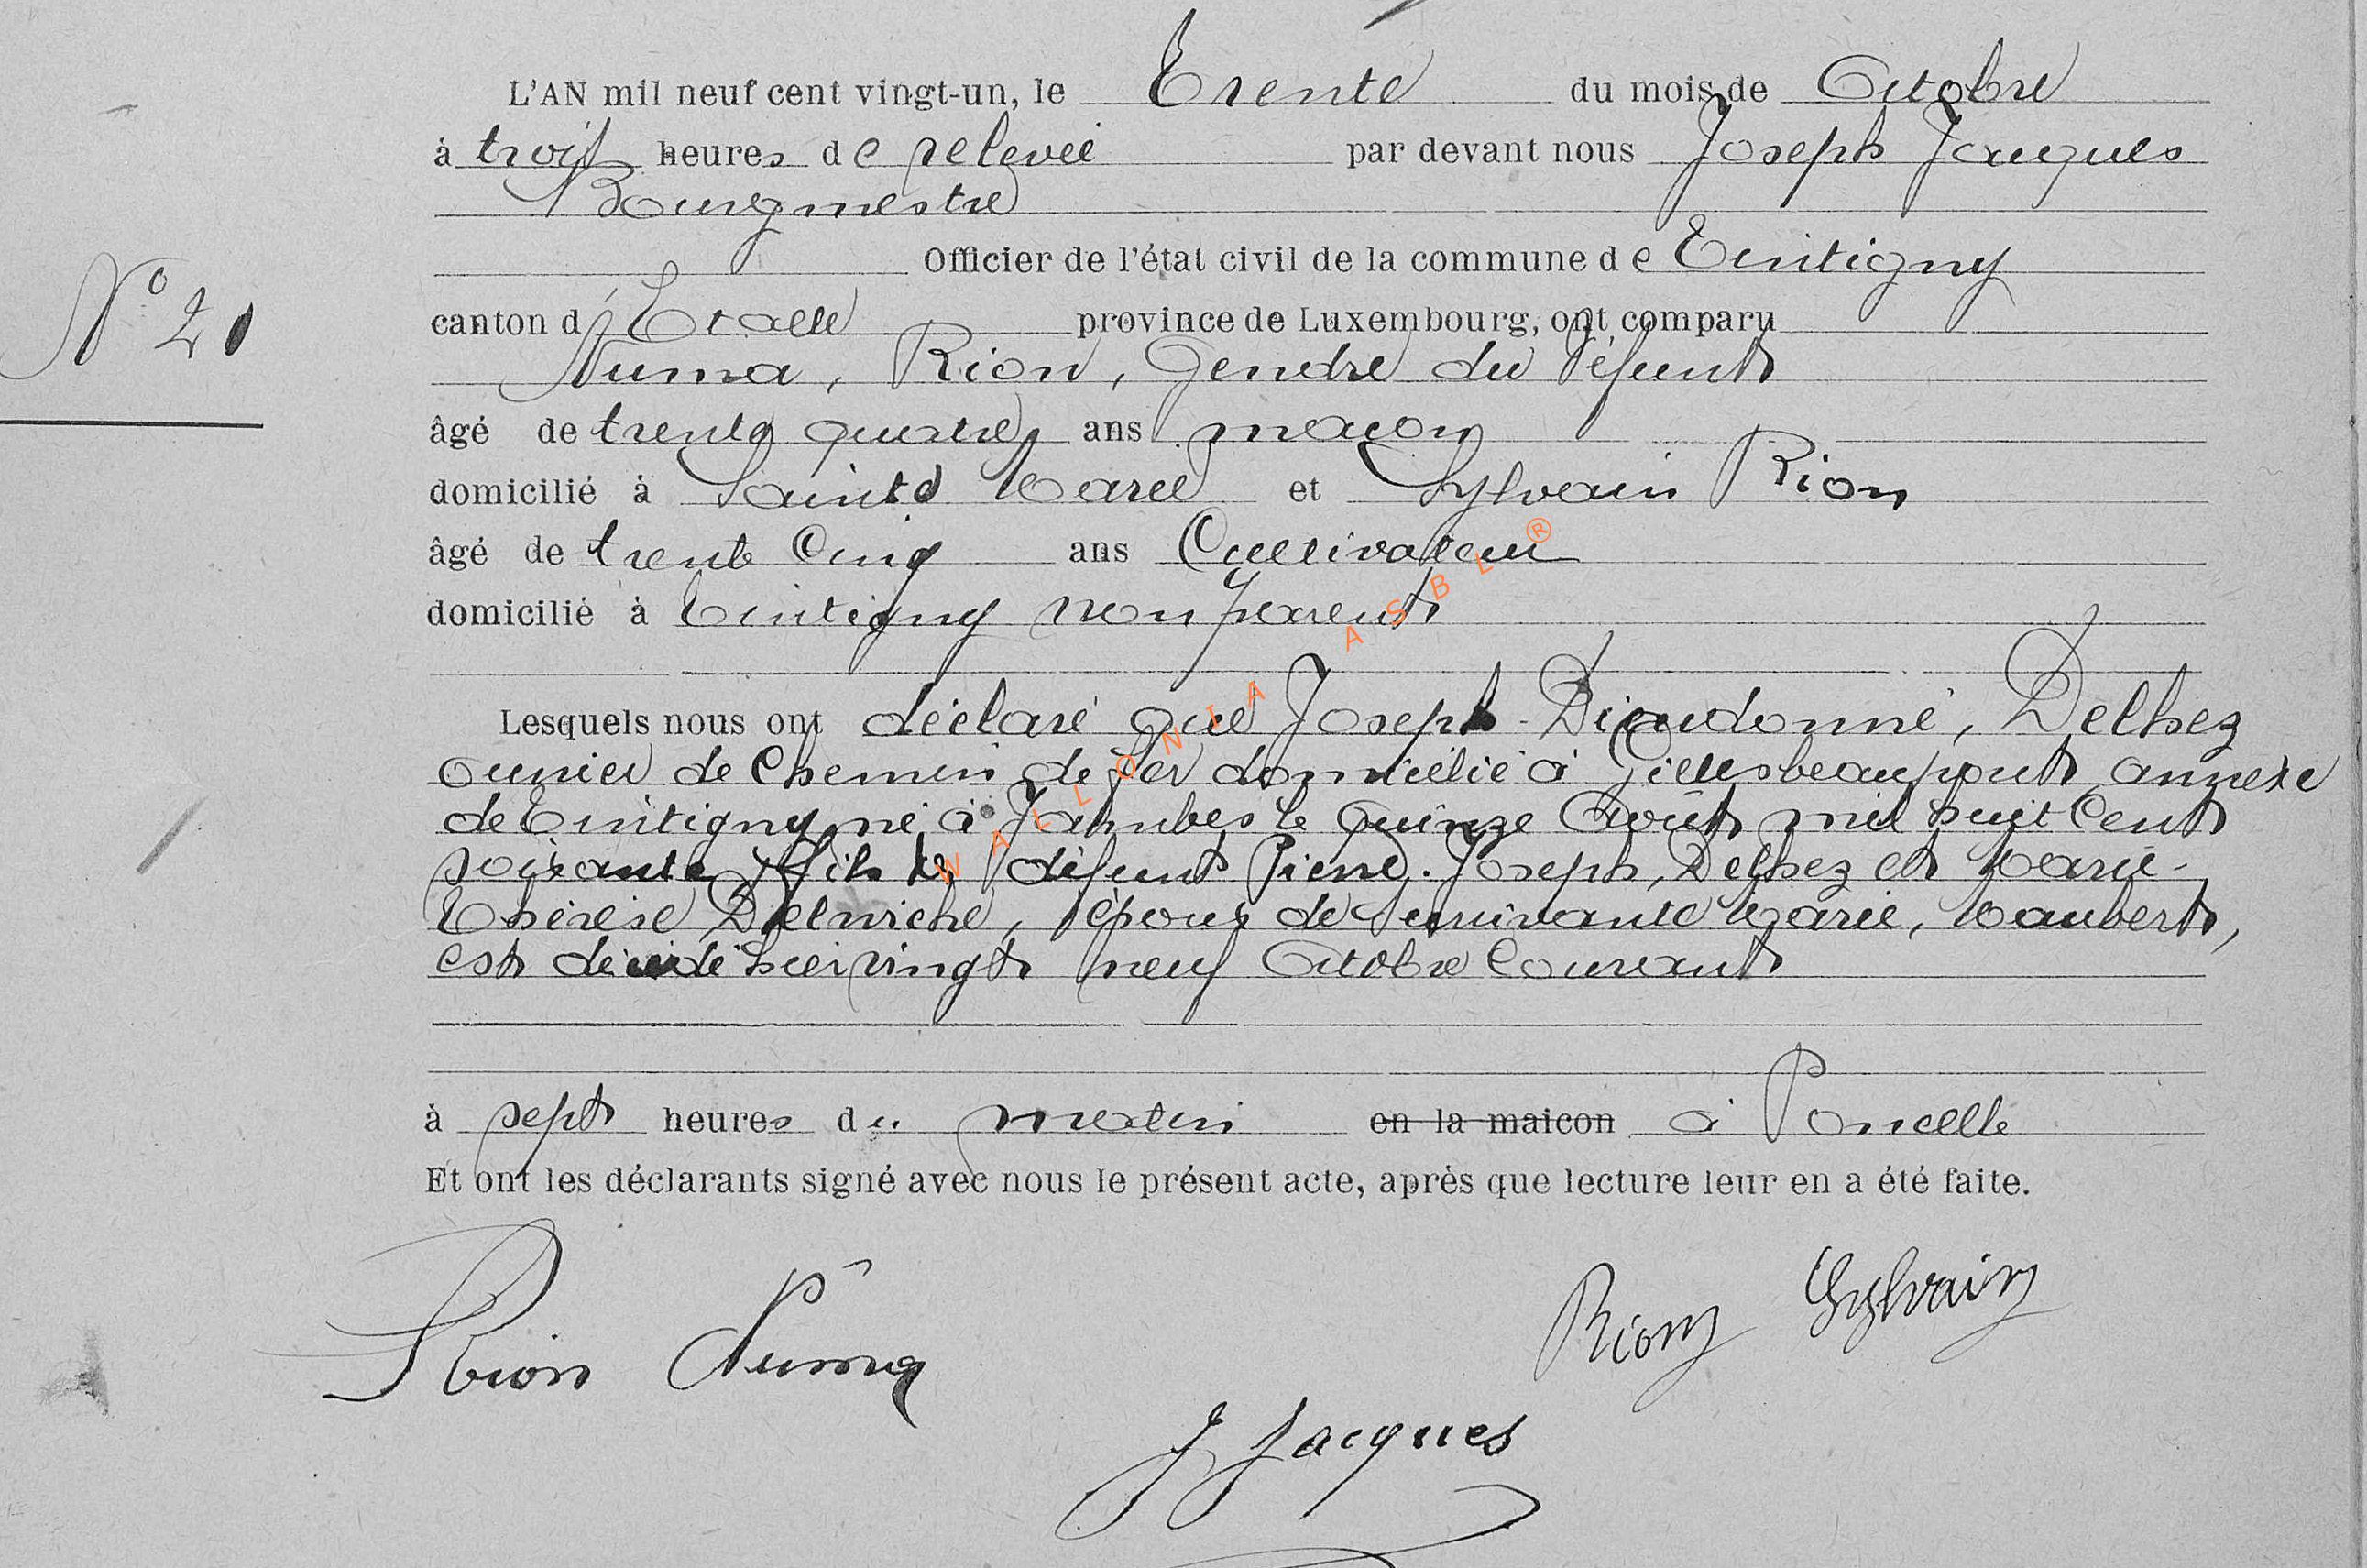 L'AN mil neuf cent vingt-un, le Trente du mois de Octobre
à trois heures de relevée par devant nous Joseph Jacques
Bourgmestre
Officier de l'état civil de la commune de Tintigny
N° 21
canton d'Etalle province de Luxembourg, ont comparu
Numa, Rion, Gendre du défunt
âgé de trente quatre ans maçon
domicilié à Sainte Marie et Sylvain Rion
âgé de trente Cinq ans Cultivateur
domicilié à Tintigny non parent
Lesquels nous ont déclaré que Joseph-Dieudonné, Delhez
ouvrier de Chemin de fer domicilié à annexe
de Tintigny né à Jambes le Quinze Août mil huit Cent
soixante, fils de défunt Pierre-Joseph, Delhez et Marie-
Thérèse Delwiche, époux de survivante Marie, Maubert,
est décédé hier vingt neuf Octobre Courant
à sept heures du matin en la maicon à Poncelle
Et ont les déclarants signé avec nous le présent acte, après que lecture leur en a été faite.
Rion Numa
Rion Sylvain
J Jacques
WALLONIA ASBL ®